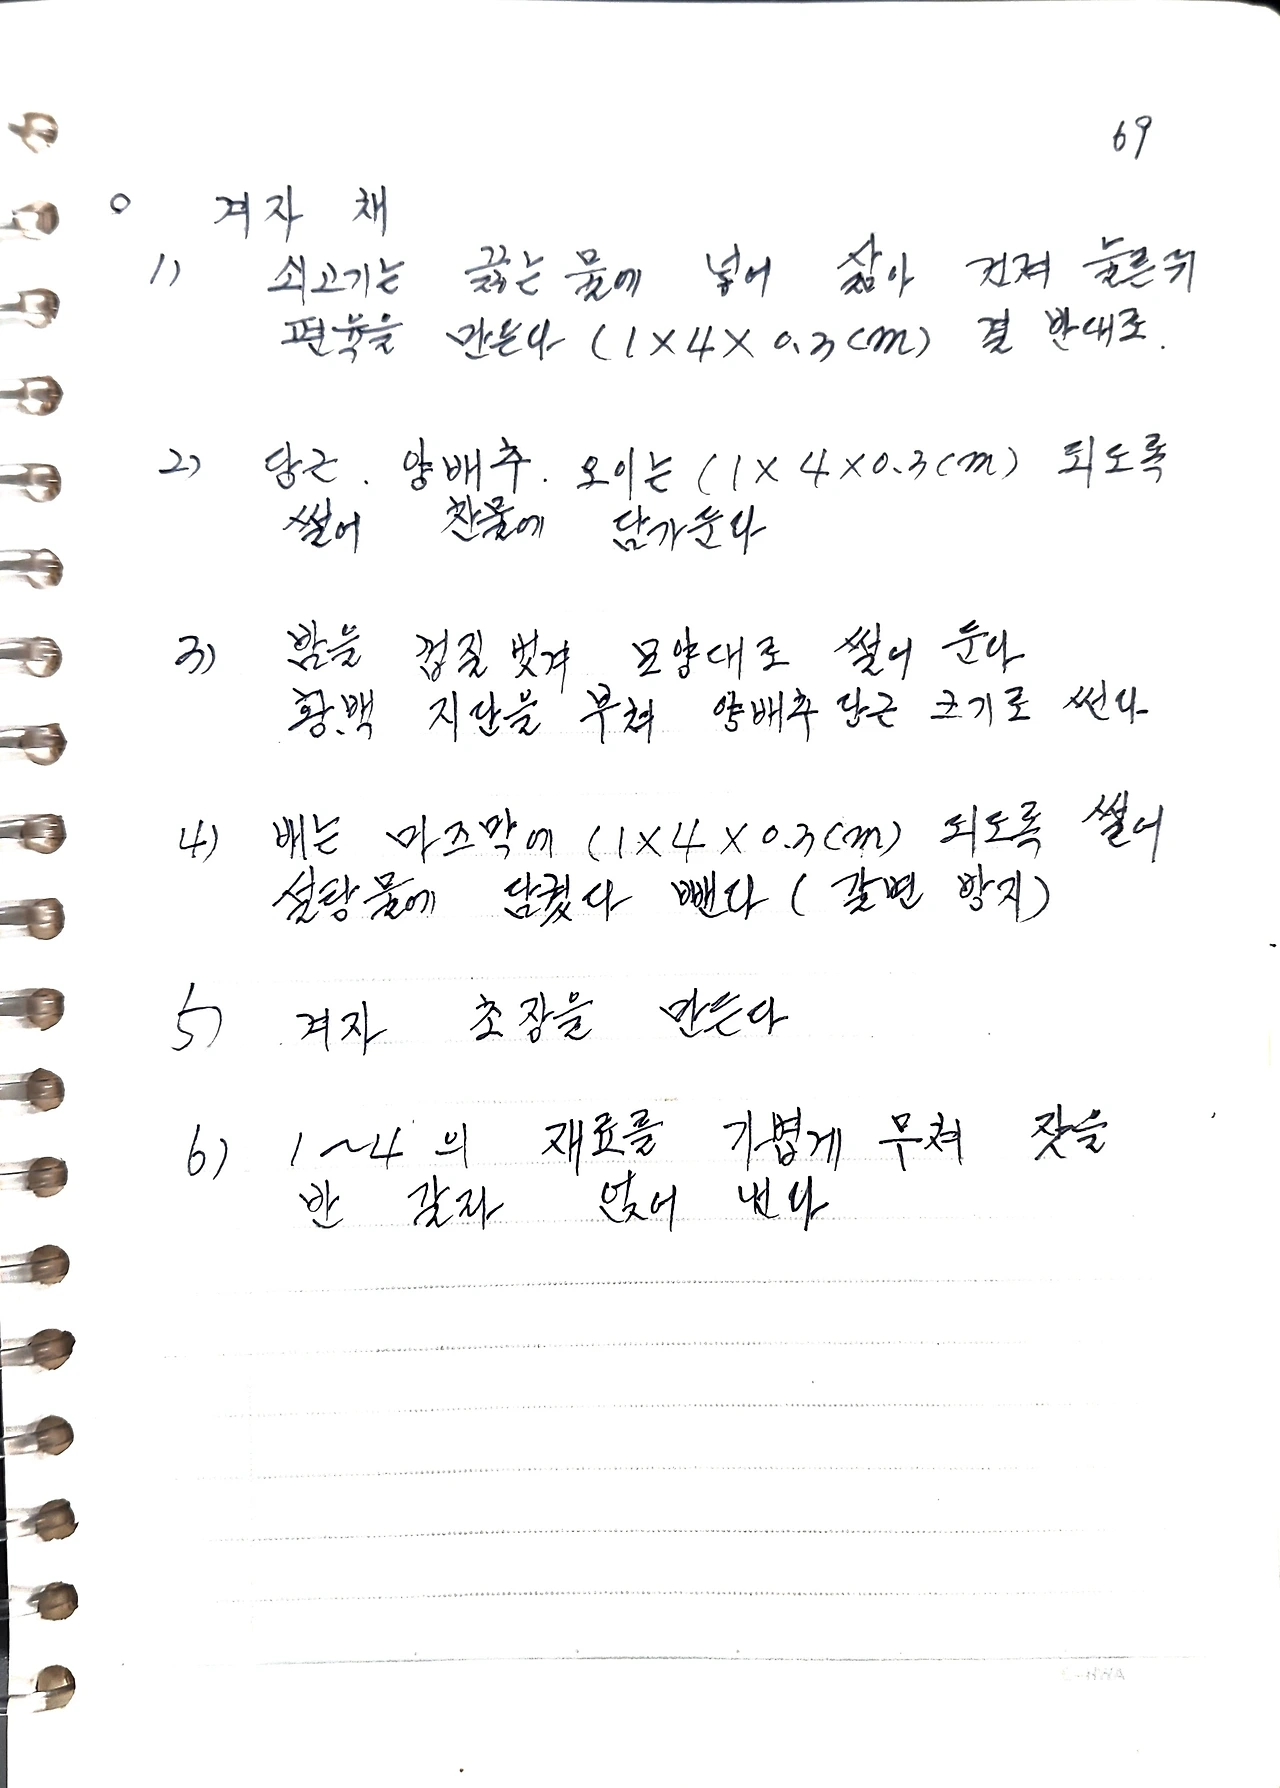 69
○ 겨자 채
1) 쇠고기는 끓는 물에 넣어 삶아 건져 눌른뒤
편육을 만든다 (1×4×0.3cm) 결 반대로.
2) 당근. 양배추. 오이는 (1×4×0.3cm) 되도록
썰어 찬물에 담가둔다
3) 밤을 껍질 벗겨 모양대로 썰어 둔다
황.백 지단을 부쳐 양배추 당근 크기로 썬다
4) 배는 마즈막에 (1×4×0.3cm) 되도록 썰어
설탕물에 담궜다 뺀다 (갈변 방지)
5) 겨자 초장을 만든다
6) 1~4 의 재료를 가볍게 무쳐 잣을
반 갈라 얹어 낸다